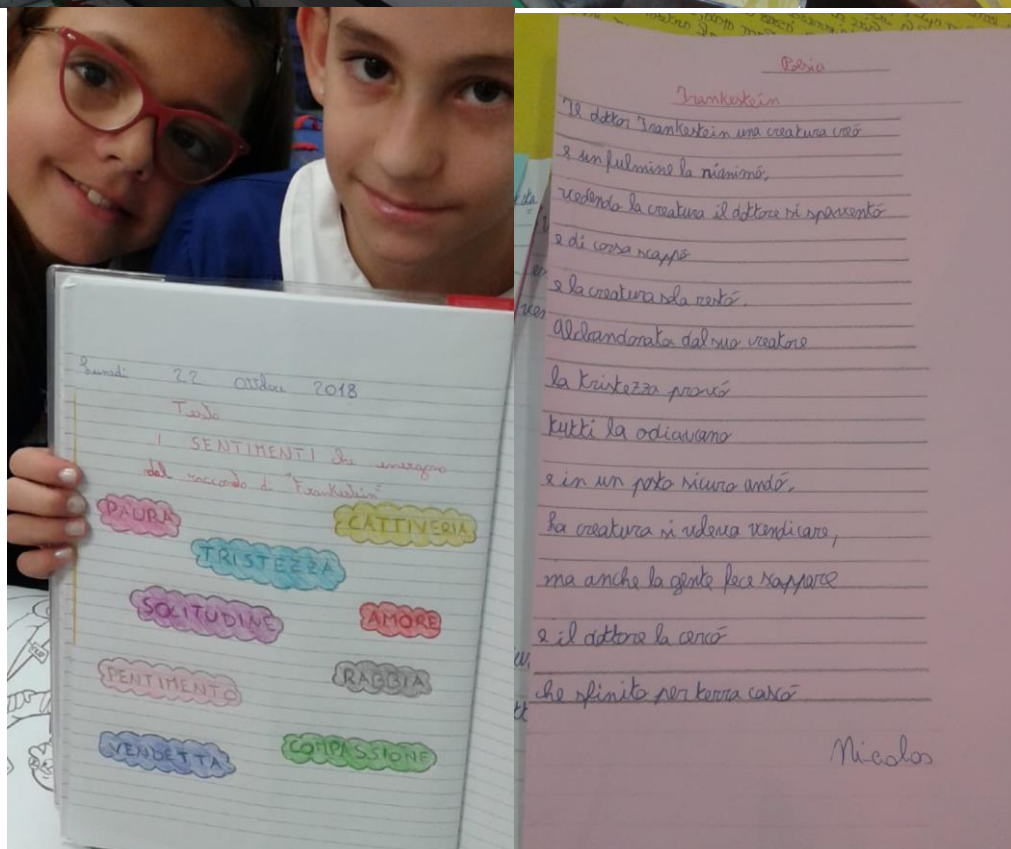 Lunedì 22 ottobre 2018
Testo
I SENTIMENTI che emergono
dal racconto di "Frankestein"
PAURA
CATTIVERIA
TRISTEZZA
SOLITUDINE
AMORE
PENTIMENTO
RABBIA
VENDETTA
COMPASSIONE
Poesia
Frankestein
Il dottor Frankestein una creatura creó
e un fulmine la rianimó,
vedendo la creatura il dottore si spaventó
e di corsa scappó
e la creatura sola restó.
Abbandonata dal suo creatore
la tristezza provó
tutti la odiavano
e in un posto sicuro andó.
La creatura si voleva vendicare,
ma anche la gente fece scappare
e il dottore la cercó
che sfinito per terra cascó
Nicolas